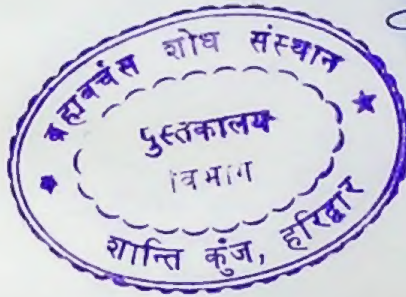 ब्रह्मवर्चस शोध संस्थान
पुस्तकालय
विभाग
शान्ति कुंज, हरिद्वार